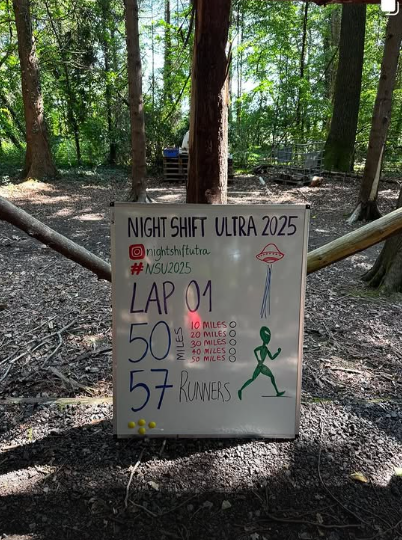 NIGHT SHIFT ULTRA 2025
nightshiftutra
#NSU2025
LAP 01
50 MILES
10 MILES
20 MILES
30 MILES
40 MILES
50 MILES
57 RUNNERS